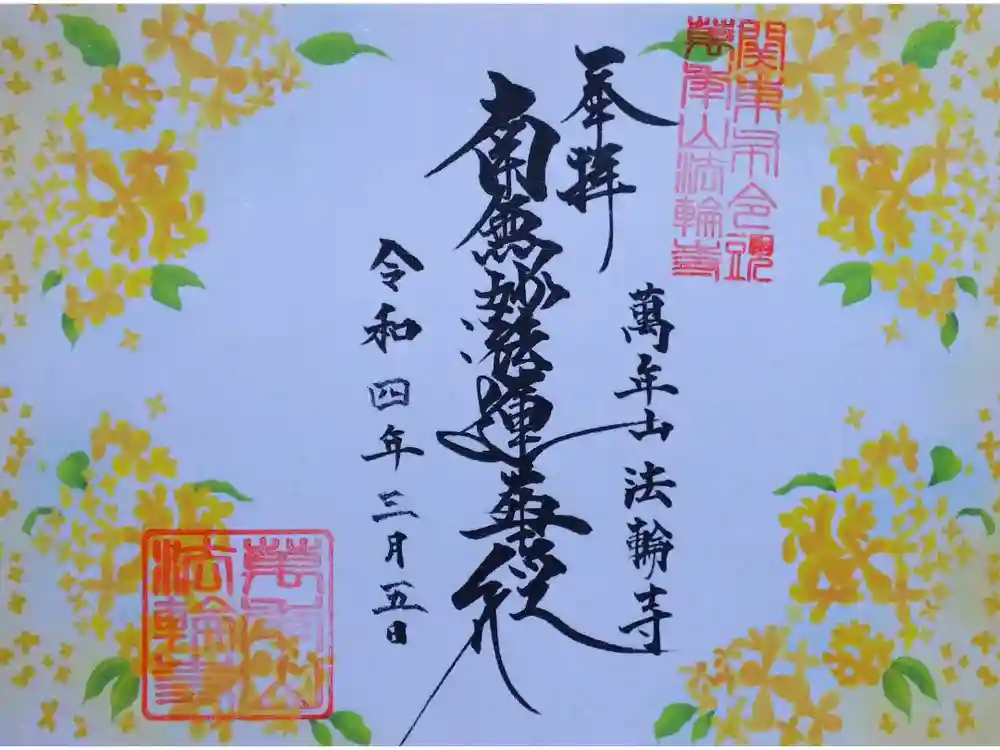 萬年山法輪寺
奉拝
萬年山 法輪寺
南無妙法蓮華経
令和四年三月五日
萬年山
法輪寺